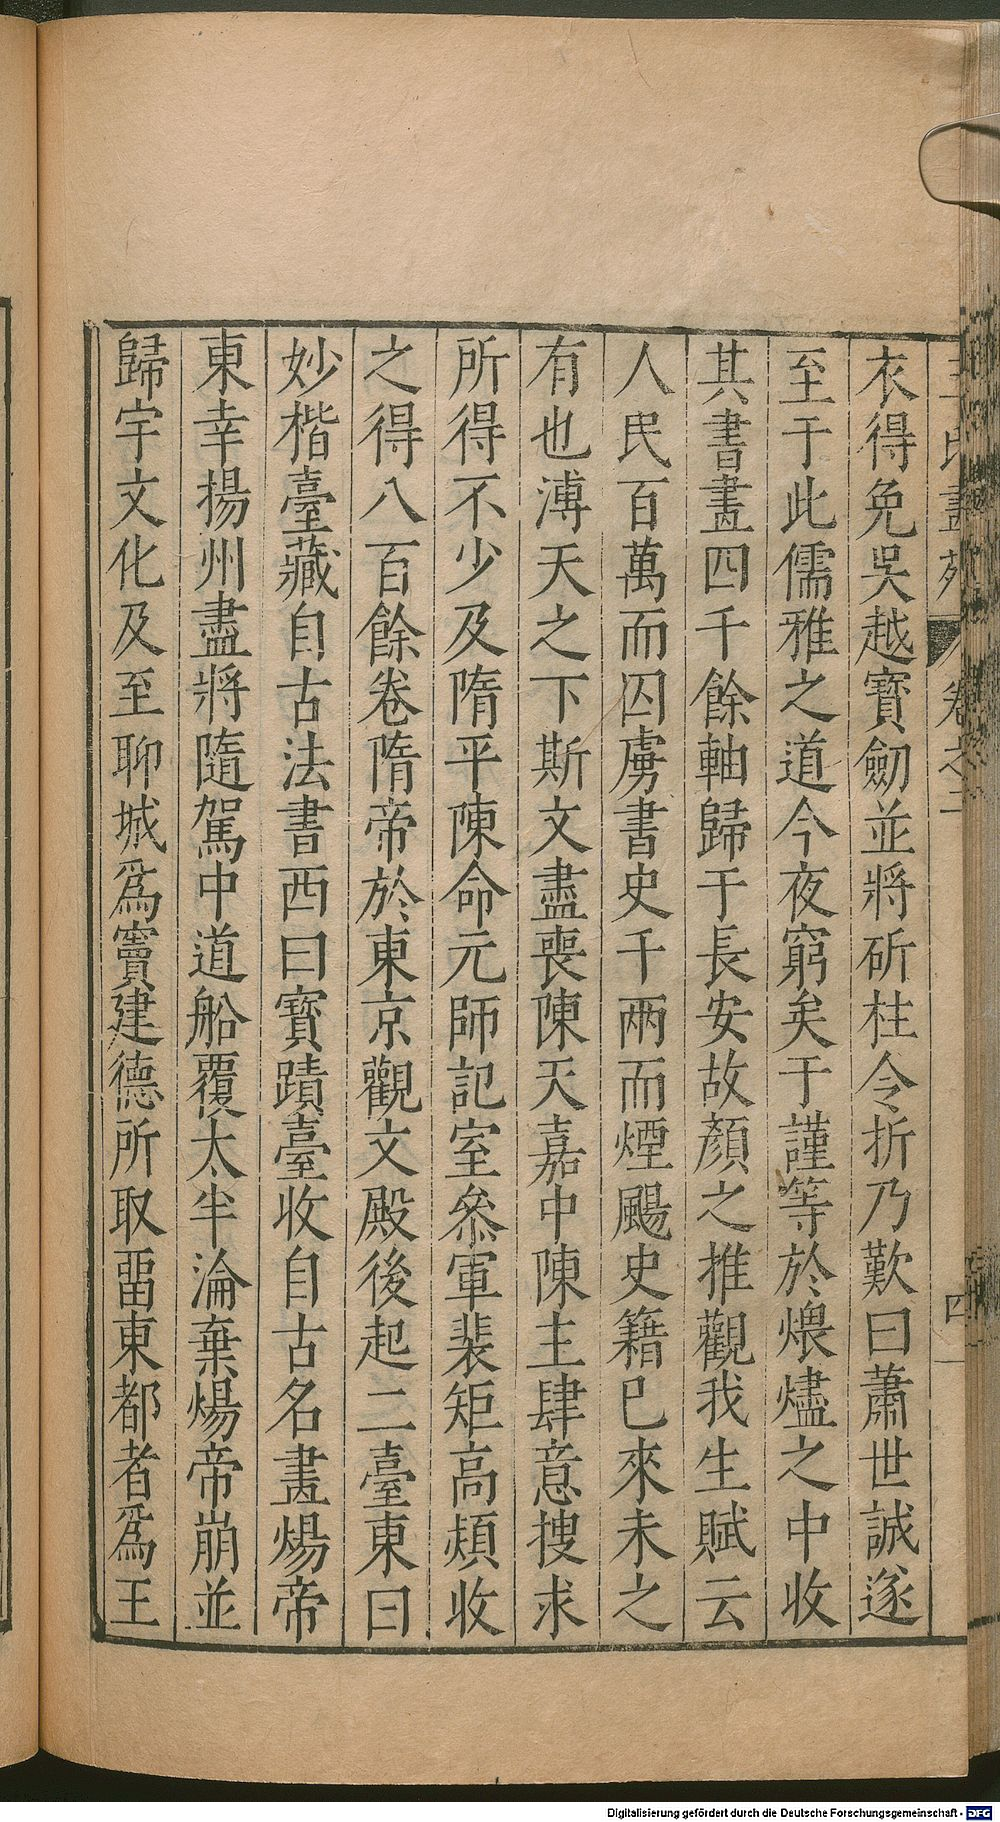 王氏畫苑 卷之二 四
衣得免吳越寶劒並將斫柱令折乃歎曰蕭世誠遂
至于此儒雅之道今夜窮矣于謹等於煨燼之中收
其書畫四千餘軸歸于長安故顏之推觀我生賦云
人民百萬而囚虜書史千兩而煙颺史籍已來未之
有也溥天之下斯文盡喪陳天嘉中陳主肆意搜求
所得不少及隋平陳命元師記室叅軍裴矩高熲收
之得八百餘卷隋帝於東京觀文殿後起二臺東曰
妙楷臺藏自古法書西曰寳蹟臺收自古名畫煬帝
東幸揚州盡將隨駕中道船覆太半淪棄煬帝崩並
歸宇文化及至聊城爲竇建德所取畱東都者爲王
Digitalisierung gefördert durch die Deutsche Forschungsgemeinschaft - DFG